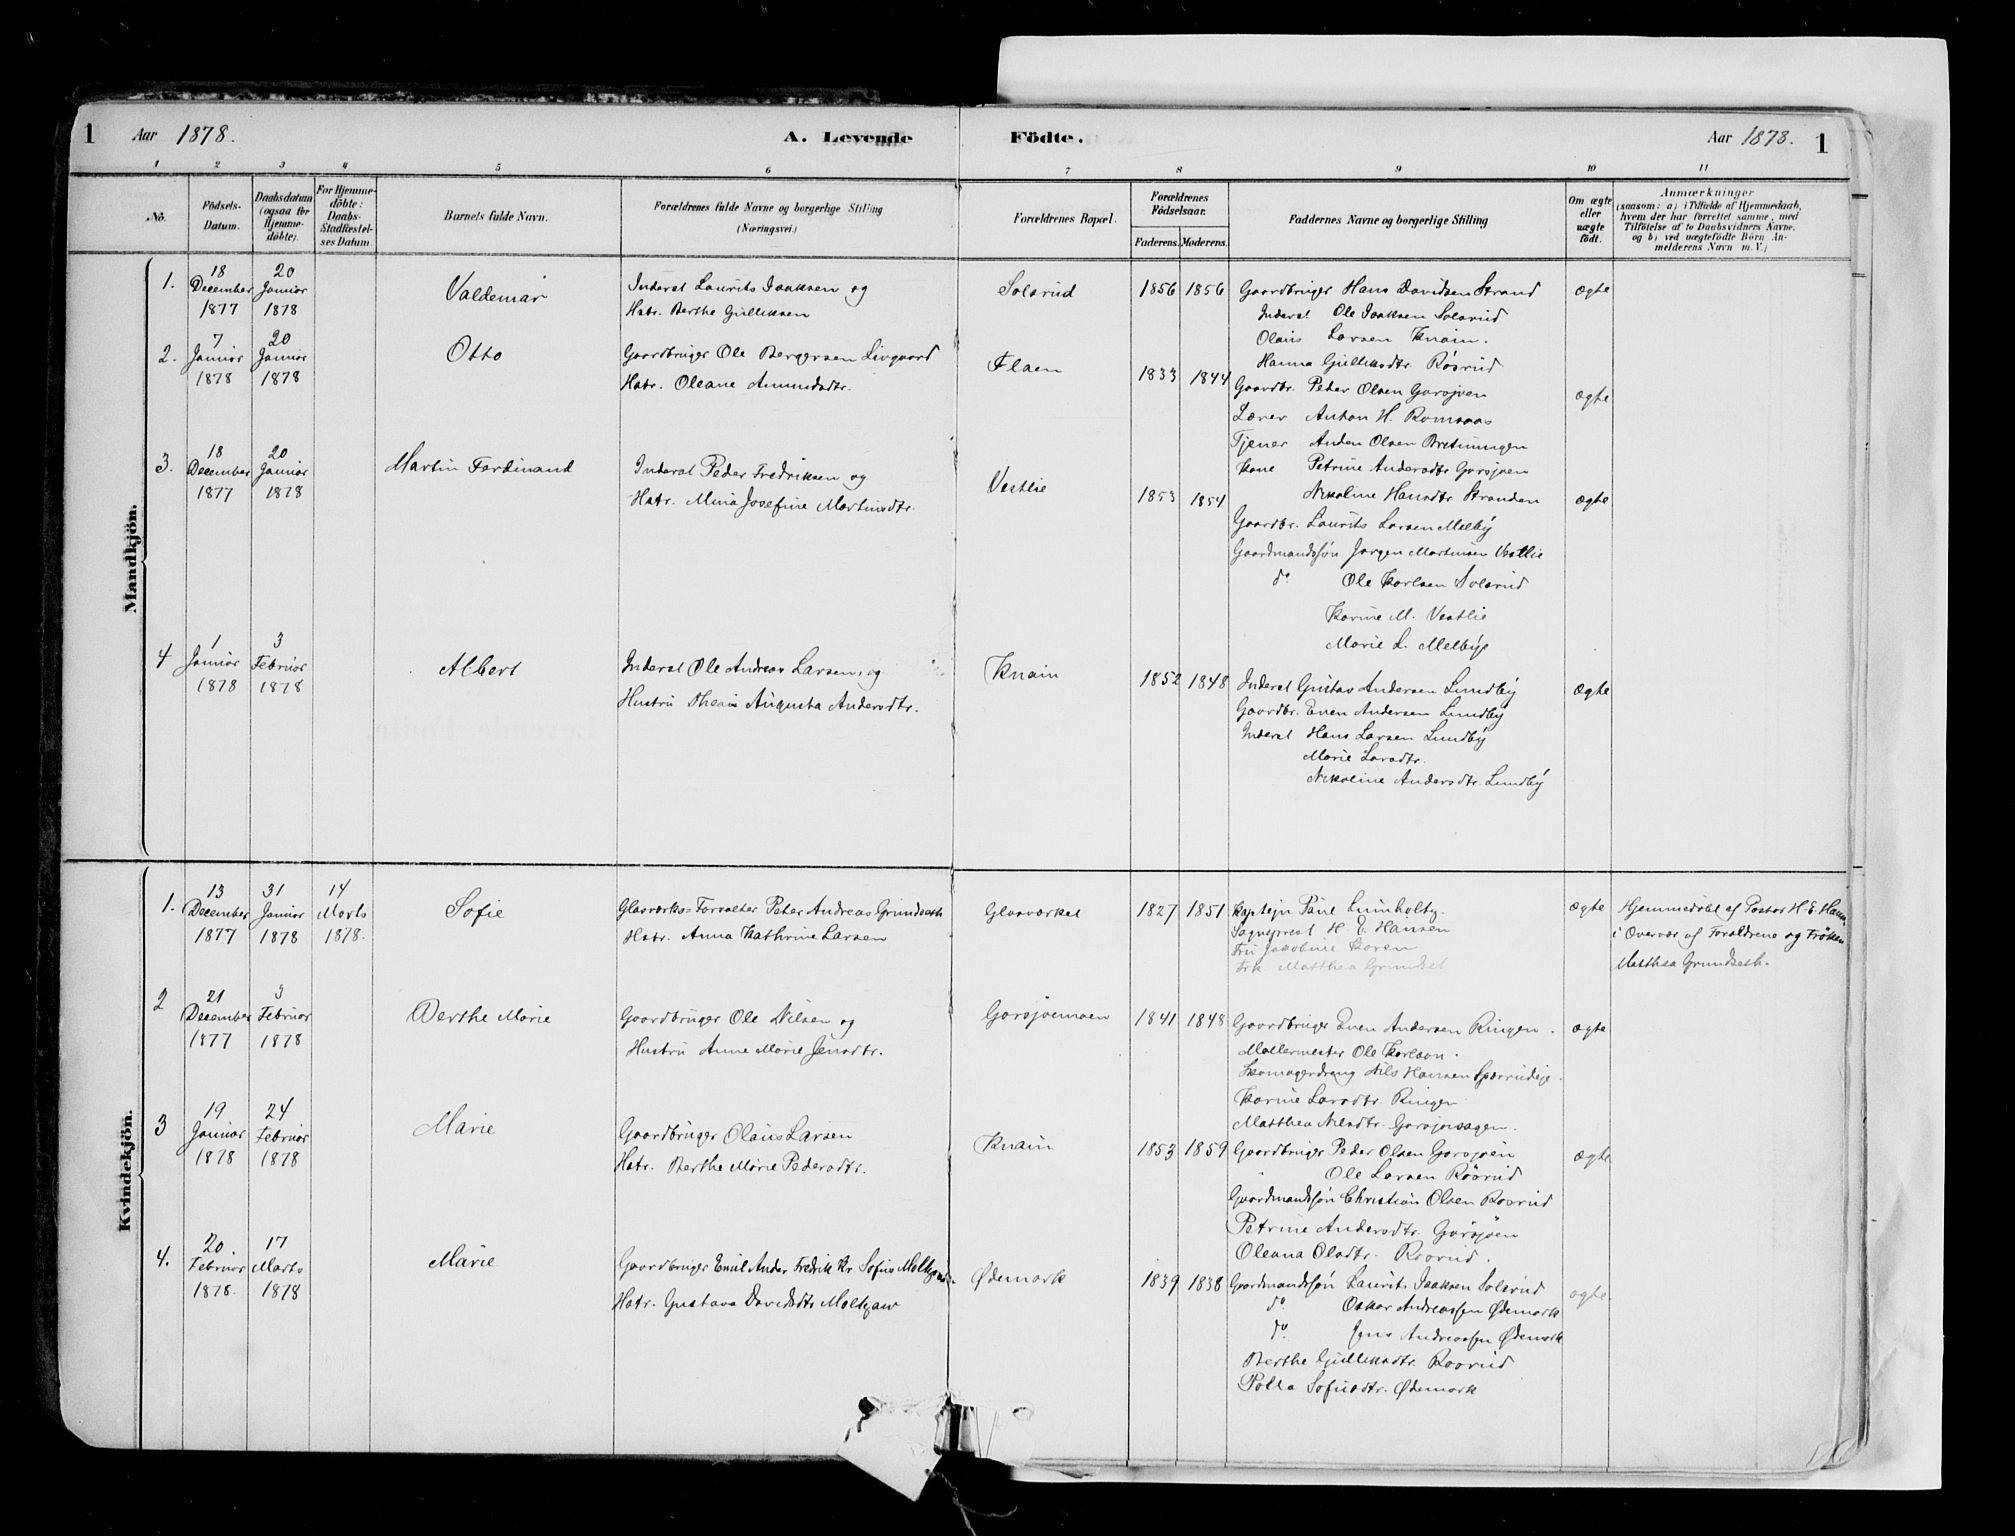 1 Aar 1878. A. Levende Födte. Aar 1878. 1
1 2 3 4 5 6 7 8 9 10 11
No.
Födsels-Datum.
Daabsdatum (ogsaa for Hjemme-döbte).
For Hjemme-döbte: Daabs-Stadfæstel-ses Datum.
Barnets fulde Navn.
Forældrenes fulde Navne og borgerlige Stilling (Næringsvei.)
Forældrenes Bopæl.
Forældrenes Födselsaar.
Faderens. Moderens.
Faddernes Navne og borgerlige Stilling
Om ægte eller uægte födt.
Anmærkninger
(saasom: a) i Tilfælde af Hjemmedaab,
hvem der har forrettet samme, med
Tilföielse af to Daabsvidners Navne,
og b) ved uægtefödte Börn An-
melderens Navn m. V.)
Mandkjön.
1. 18 December 1877 20 Januar 1878 Valdemar
Inderst Laurits Isaksen og
Hstr. Berthe Gulliksen
Solsrud 1856 1856
Gaardbruger Hans Davidsen Strand
Inderst Ole Isaksen Solsrud
Olaus Larsen Knain.
Hanna Gulliksdtr. Rösrud
ægte
2. 7 Januar 1878 20 Januar 1878 Otto
Gaardbruger Ole Bergersen Livgaard
Hstr. Oleane Amundsdtr.
Flaen 1833 1844
Gaardbr. Peder Olsen Garsjøen
Lærer Anton H. Romsaas
Tjener Anders Olsen
Kone Petrine Andersdtr Garsjøen
Nikoline Hansdtr. Stranden
ægte
3. 18 December 1877 20 Januar 1878 Martin Ferdinand
Inderst Peder Fredriksen og
Hstr. Mina Josefine Martinsdtr.
Vestlie 1853 1854
Gaardbr. Laurits Larsen Melby
Gaardmandssøn Jørgen Martinsen Vestlie
do Ole Karlsen Solsrud
Karine M. Vestlie
Marie L. Melbye
ægte
4 1 Januar 1878 3 Februar 1878 Albert
Inderst Ole Andreas Larsen, og
Hustru Augusta Andersdtr.
Knain 1852 1848
Inderst Gustav Andersen Lundby
Gaardbr. Even Andersen Lundby
Inderst Hans Larsen Lundby
Marie Larsdtr.
Nikoline Andersdtr. Lundby
ægte
Kvindekjön.
1. 13 December 1877 31 Januar 1878 14 Marts 1878. Sofie
Glasværks-Forvalter Peter Andreas Grundseth
Hstr. Anna Kathrine Larsen
Glasværket 1827 1851
Kaptejn Paul Lumholtz.
Sogneprest H. E. Hansen
Fru Jakobine Koren
Frk Matthea Grundset
ægte
Hjemmedøbt af Pastor H. E. Hansen
i Overvær af Forældrene og Frøken
Matthea Grundseth.
2 21 December 1877 3 Februar 1878 Berthe Marie
Gaardbruger Ole Nilsen og
Hustru Anne Marie Jensdtr.
Garsjøemoen 1841 1848
Gaardbruger Even Andersen Ringen.
Møllermester Ole Karlson.
Skomagerdreng Nils Hansen
Karine Larsdtr. Ringen
Matthea Nilsdtr.
ægte
3 19 Januar 1878 24 Februar 1878 Marie
Gaardbruger Olaus Larsen
Hstr. Berthe Marie Pedersdtr.
Knain 1853 1859
Gaardbruger Peder Olsen Garsjøen
" Ole Larsen Röörud
Gaardmandssøn Christian Olsen Roorud
Petrine Andersdtr. Garsjøen
Oleana Olsdtr. Roorud.
ægte
4. 20 Februar 1878. 17 Marts 1878 Marie
Gaardbruger Emil Ander Fredrik Kr. Sofus
Hstr. Gustava Davidsdtr
Ødemark 1839 1838
Gaardmandssøn Laurits Isaksen Solsrud
do Oskar Andreassen Ødemark
do Jens Andreassen Ødemark
Berthe Gulliksdtr. Roorud
Polla Sofusdtr. Ødemark
ægte.